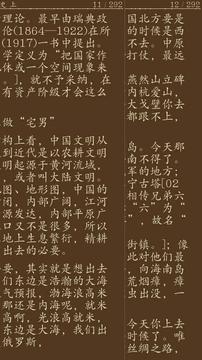 史上 11/292
理论。最早由瑞典政
伦(1864—1922)在所
(1917)一书中提出。
学定义为“把国家作
体或一个空间现象来
。]，就不予采纳，在
有资产阶级才会这么
做“宅男”
构上看，中国文明从
到近代是以农耕文明
明起源于黄河流域，
，或者叫大陆文明。
图、地形图，中国的
闭，内部广阔，江河
源发达，内部平原广
口又不是很多，所以
地上生息繁衍，精耕
出去的必要。
要，其实就是想出去
们东边是浩瀚的大海
气预报，渤海浪高米
那还是内海呢，就米
高啊，光浪高就米，
东边是大海，我们出
俄罗斯，
12/292
国北方要是
的时候是西
不去。中原
打仗，最远
燕然山立碑
内杭爱山，
大戈壁你去
都跟不上，
岛。今天那
南不得了。
军的地方；
宁古塔[02
相传兄弟六
“六”为“
，故名“
街镇。]；像
此对他们最
，向海南岛
荒烟瘴，瘴
虫出没，
今天你上去
时候了。唯
丝绸之路，